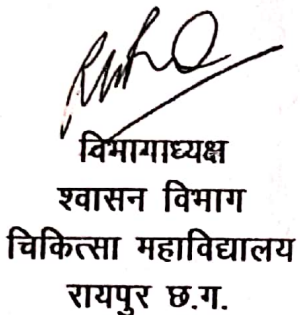 विभागाध्यक्ष
श्वासन विभाग
चिकित्सा महाविद्यालय
रायपुर छ.ग.